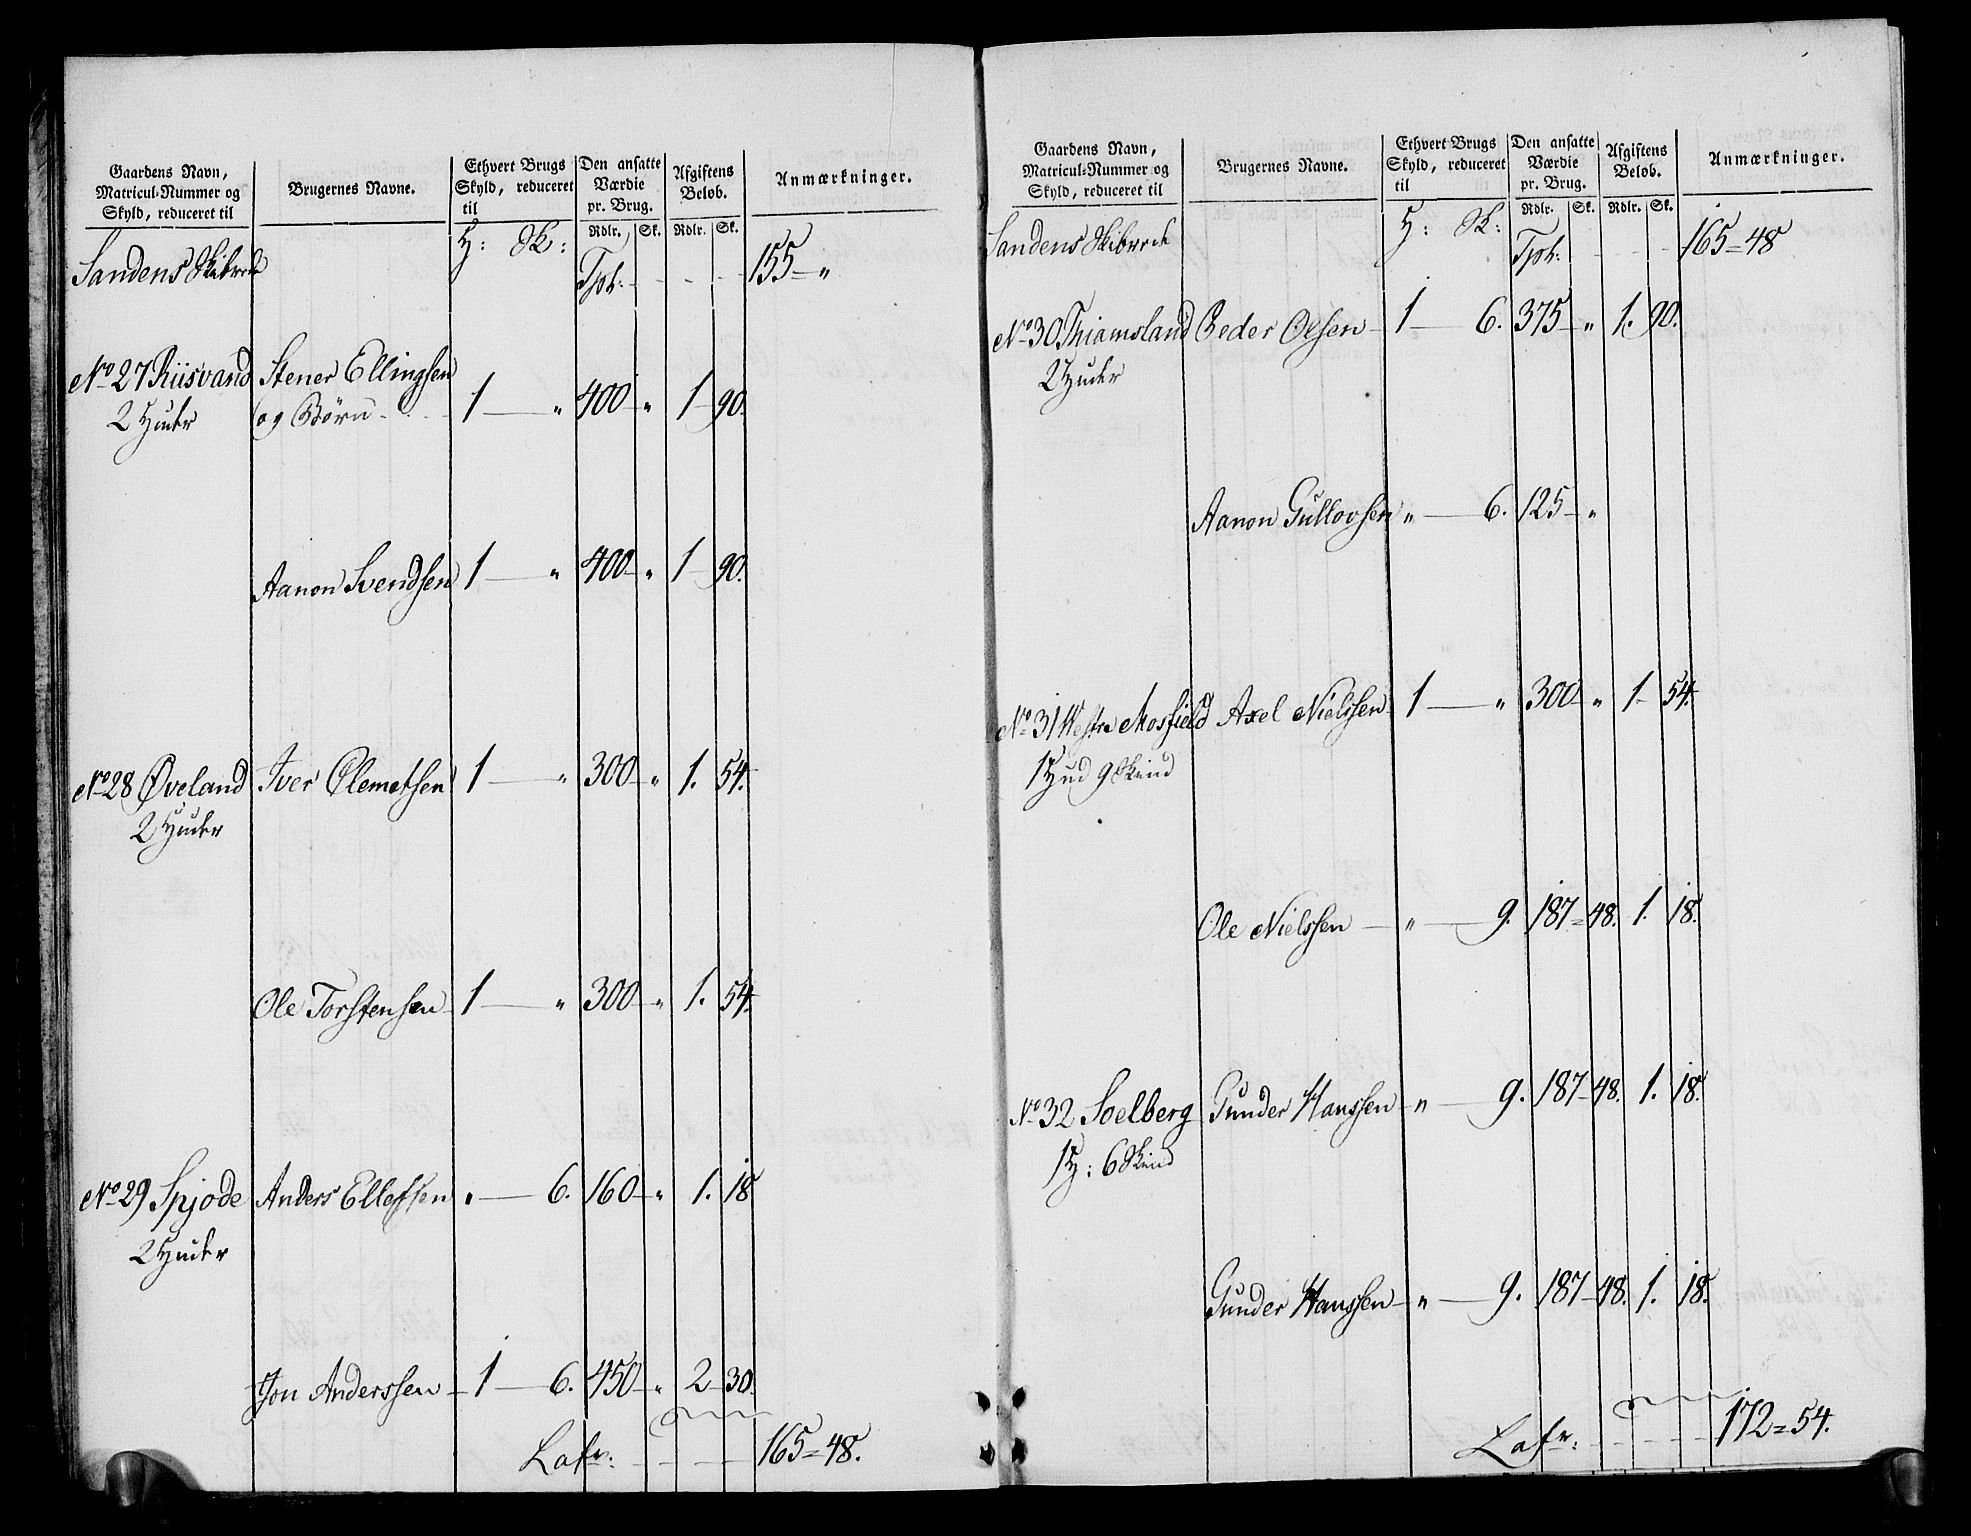 Gaardens Navn,
Matricul-Nummer og
Skyld, reduceret til
Brugernes Navne.
Ethvert Brugs
Skyld, reduceret
til
Den ansatte
Værdie
pr. Brug.
Afgiftens
Beløb.
Anmærkninger.
Rdlr. Sk. Rdlr. Sk.
Sandens Skibrede H: Sk: Tpt: 155 – "
No 27 Riisvand Stener Ellingsen
2 Huder og Børn 1 — " 400 – " 1 – 90.
Aanon Svendsen 1 — " 400 – " 1 – 90.
No 28 Øveland Iver Clemetsen 1 — " 300 – " 1. 54.
2 Huder
Ole Torstensen 1 — " 300 – " 1. 54.
No 29 Spjode Anders Ellefsen " — 6. 160 – " 1. 18
2 Huder
Jon Anderssen 1 — 6. 450 – " 2 – 30.
Lafr: 165 = 48.
Gaardens Navn,
Matricul-Nummer og
Skyld, reduceret til
Brugernes Navne.
Ethvert Brugs
Skyld, reduceret
til
Den ansatte
Værdie
pr. Brug.
Afgiftens
Beløb.
Anmærkninger.
Rdlr. Sk. Rdlr. Sk.
Sandens Skibrede H: Sk: Tpt: 165 = 48
No 30 Thiomsland Peder Olsen 1 — 6. 375 – " 1. 90.
2 Huder
Aanon Gullovsen " — 6. 125 – "
No 31 Westre Mosfield Axel Nielssen 1 — " 300 – " 1 – 54.
1 Hud 9 Skind
Ole Nielssen — " — 9. 187 = 48. 1. 18.
No 32 Soelberg Gunder Hanssen – " — 9. 187 – 48. 1. 18.
1 H: 6 Skind
Gunder Hanssen – " — 9. 187 – 48. 1. 18.
Lafr: 172 = 54.